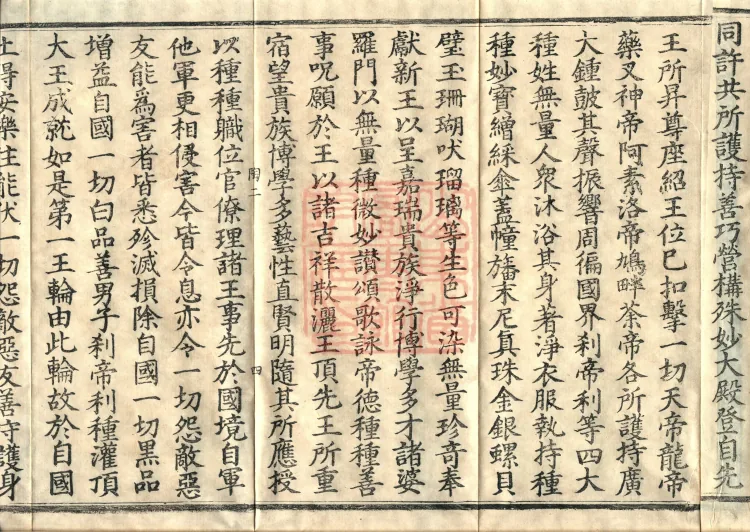 同許共所護持善巧營構殊妙大殿登自先
王所昇尊座紹王位已扣擊一切天帝龍帝
藥叉神帝阿素洛帝鳩畔荼帝各所護持廣
大鍾鼓其聲振響周徧國界剎帝利等四大
種姓無量人衆沐浴其身著淨衣服執持種
種妙寶繒綵傘蓋幢旛末尼真珠金銀螺貝
璧玉珊瑚吠瑠璃等生色可染無量珍奇奉
獻新王以呈嘉瑞貴族淨行博學多才諸婆
羅門以無量種微妙讃頌歌詠帝德種種善
事呪願於王以諸吉祥散灑王頂先王所重
宿望貴族博學多藝性直賢明隨其所應授
陶二 四
以種種職位官僚理諸王事先於國境自軍
他軍更相侵害今皆令息亦令一切怨敵惡
友能爲害者皆悉殄滅損除自國一切黑品
增益自國一切白品善男子剎帝利種灌頂
大王成就如是第一王輪由此輪故於自國
土得安樂住能伏一切怨敵惡友善守護身